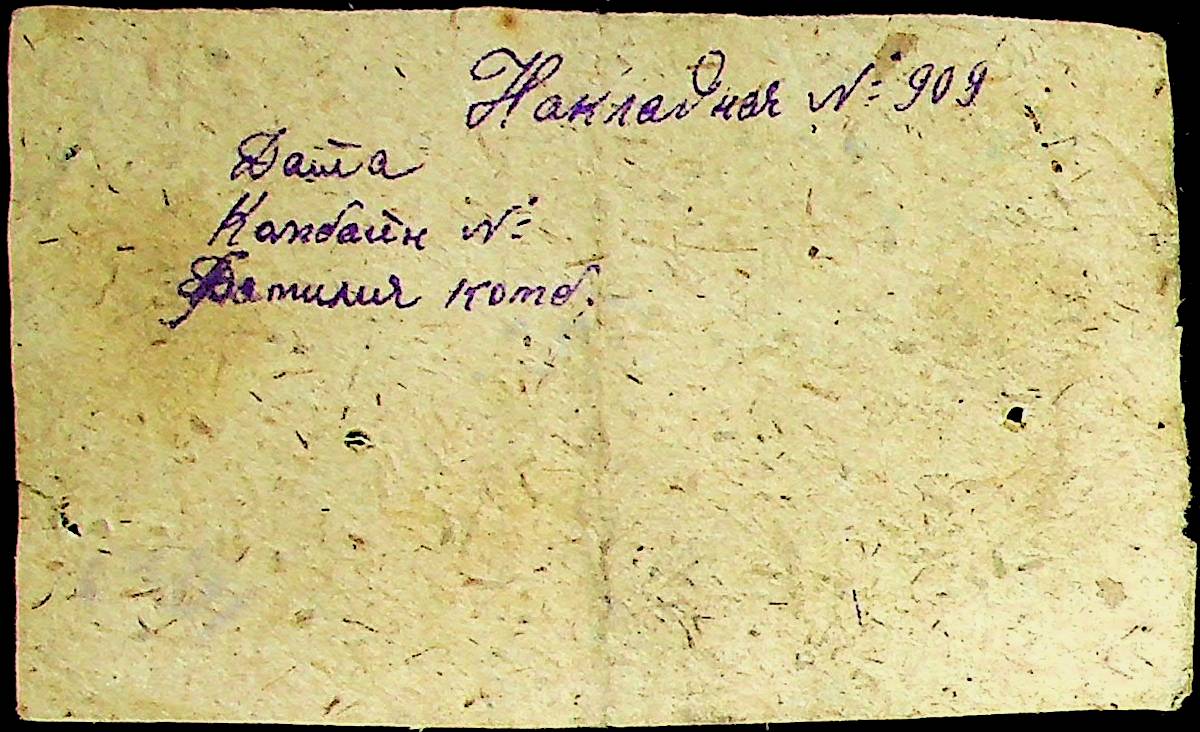 Накладная № 909
Дата
Комбайн №
Фамилия комб.